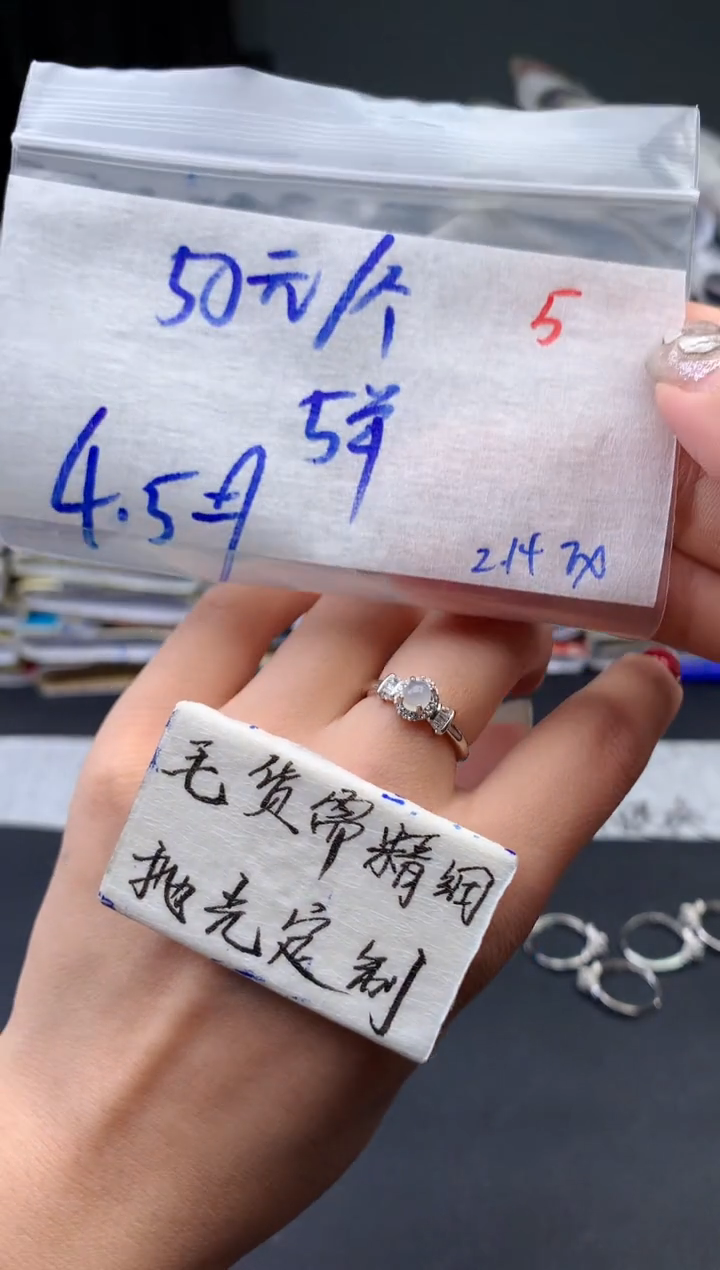 50元/个
5
5羊
4.5
214
毛货需精细
抛光定制